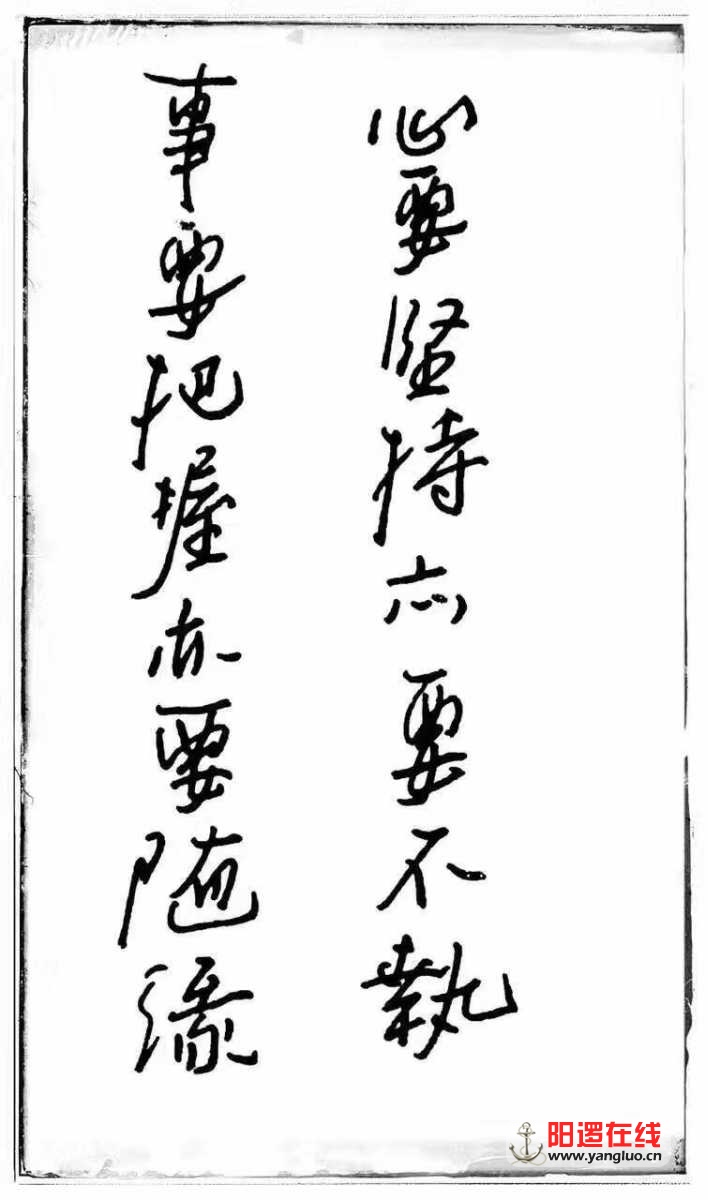 心要坚持亦要不執
事要把握亦要随缘
阳逻在线
www.yangluo.cn